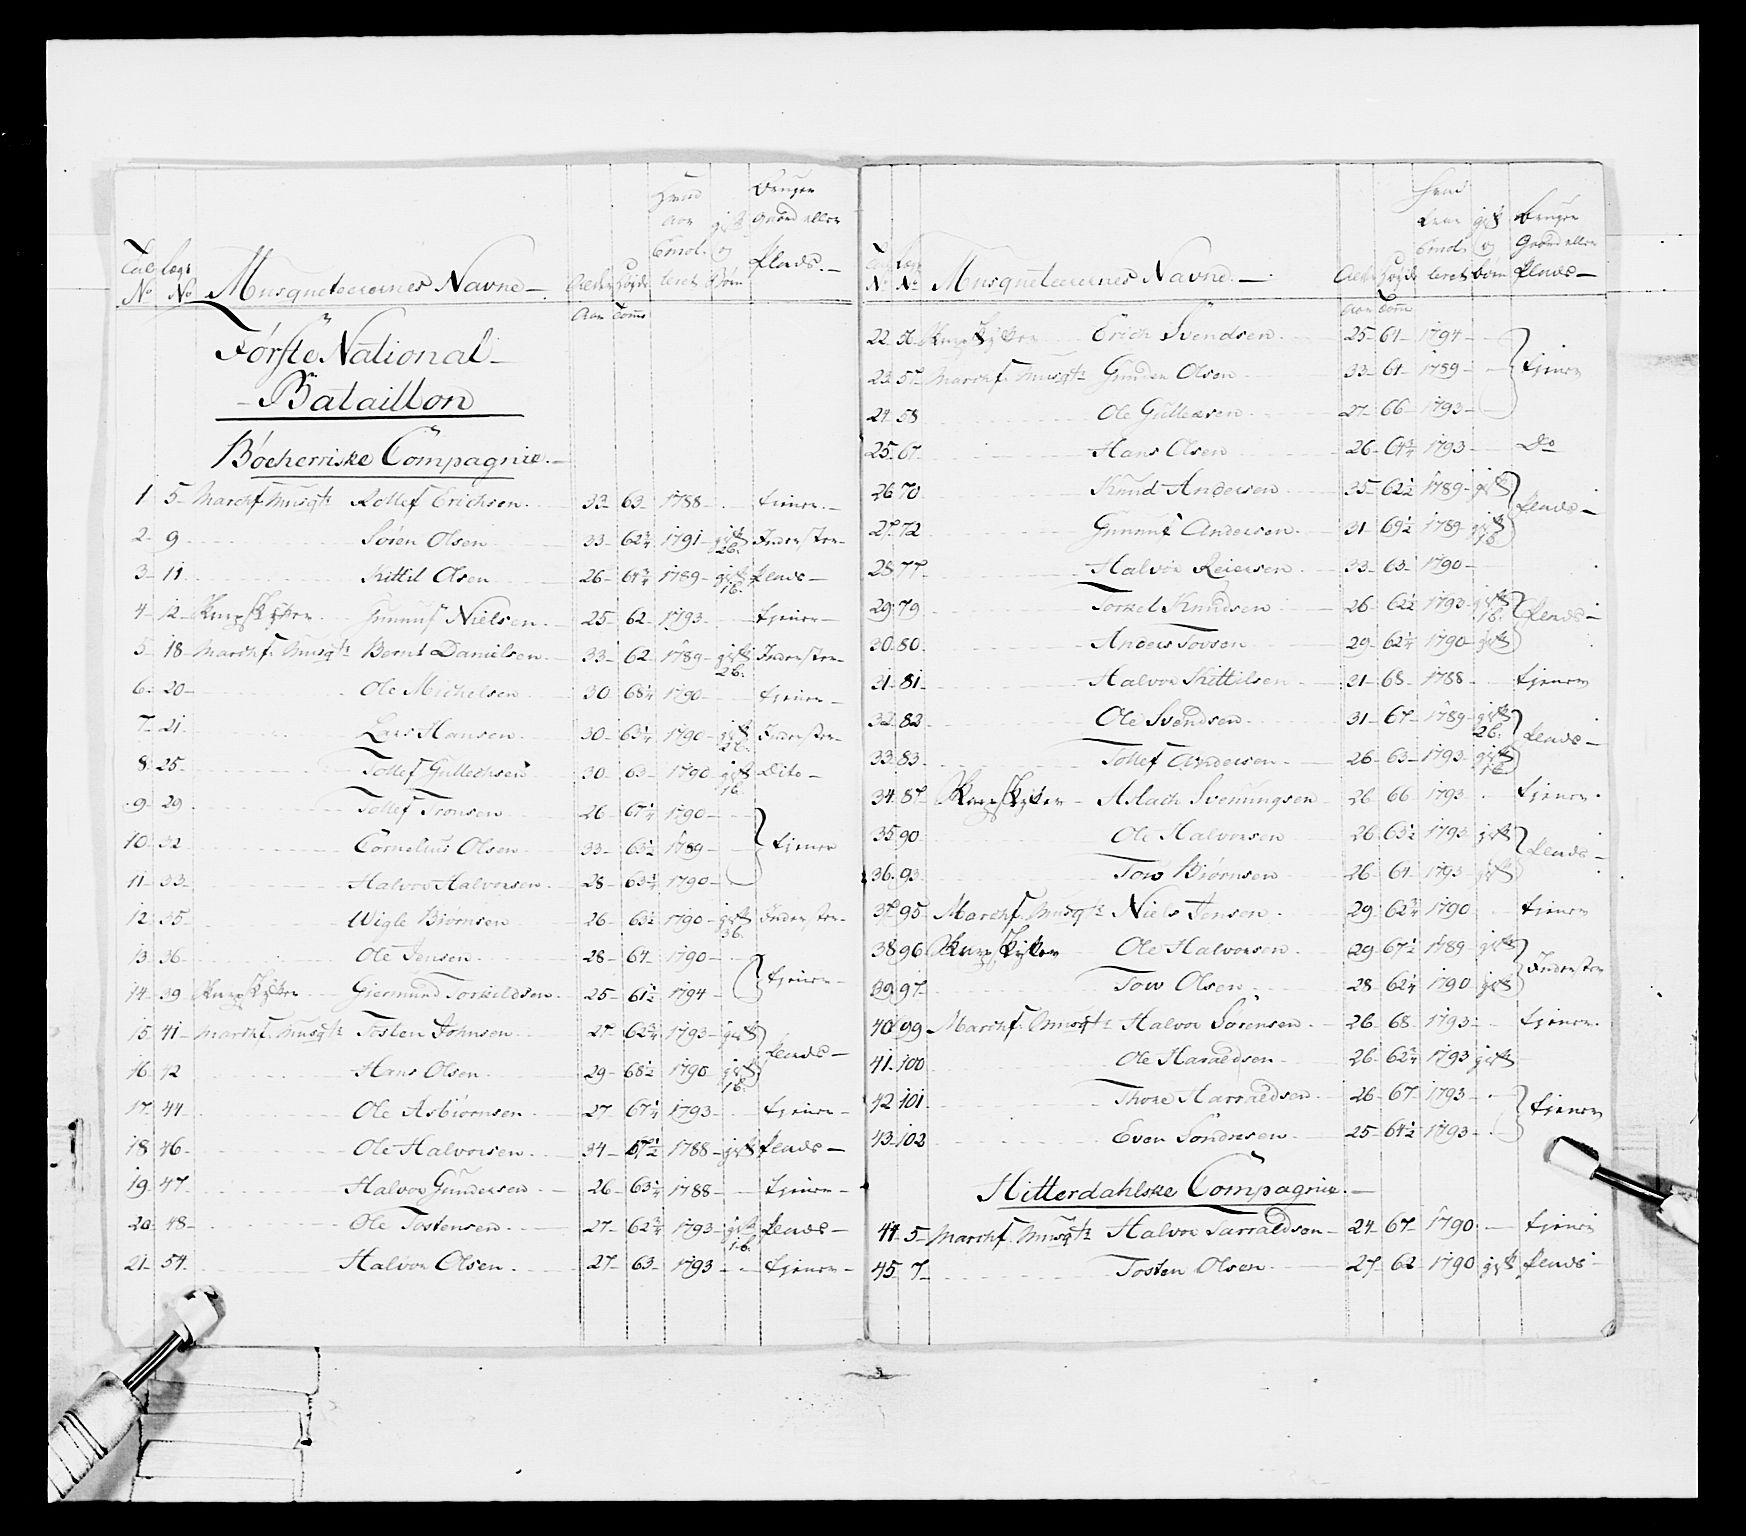 Tal No Lægs No Musqueteerernes Navne Alder Høyde Hvad Aar Enrol. leret gift og Børn Bruger Gaard eller Plads.
Aar Tom̄e
Første National
Bataillon
Bøeherriske Compagnie.
1 5 Marchf. Musqt: Rollef Erichsen 33 63 1788 tjener
2 9 Søren Olsen 33 62¾ 1791 gift 2b. Inderster
3 11 Kittil Olsen 26 61¾ 1789 gift 1b. plads
4 12 Knapskytter Gunnuf Nielsen 25 62 1793 tjener
5 18 Marchf. Musqt: Bernt Danielsen 33 62 1789 gift 2b. Inderster
6 20 Ole Michelsen 30 68¼ 1790 tjener
7 21 Lars Hansen 30 63¼ 1790 gift 2b. Inderster
8 25 Tollef Gullechsen 30 63 1790 gift 1b. Dito
9 29 Tollef Tronsen 26 67¼ 1790
10 32 Cornelius Olsen 33 63½ 1789 tjener
11 33 Halvor Halvorsen 28 63¼ 1790
12 35 Wigle Biørnsen 26 63½ 1790 gift 3b. Inderster
13 36 Ole Jensen 28 64 1790
14 39 Knapskytter Giermund Torkildsen 25 61½ 1794 tjener
15 41 Marchf. Musqt: Tosten Johnsen 27 62¾ 1793 gift
16 42 Hans Olsen 29 68½ 1790 gift 1b. plads
17 44 Ole Asbiørnsen 27 67¼ 1793 tjener
18 46 Ole Halvorsen 34 67½ 1788 gift plads
19 47 Halvor Gundersen 26 63¼ 1788 tjener
20 48 Ole Tostensen 27 62¾ 1793 gift 1b. plads
21 54 Halvor Olsen 27 63 1793 tjener
Tal No Læg No Musqueteerernes Navne Alder Høyde Hvad Enrol. leret gift og børn Bruger Gaard eller plads
Aar Tom̄e
22 56 Knapskytter Erich Svendsen 25 61 1794
23 57 Marchf. Musqt: Gunder Olsen 33 61 1789 tjener
24 58 Ole Gullersen 27 66 1793
25 67 Hans Olsen 26 64¾ 1793 Do
26 70 Knud Andersen 35 62½ 1789 gift
27 72 Gunnuf Andersen 31 69½ 1789 gift 1b plads
28 77 Halvor Reiersen 33 63 1790
29 79 Torkel Knudsen 26 62½ 1793 gift 1b. plads
30 80 Anders Tovsen 29 62¼ 1790 gift
31 81 Halvor Kittilsen 31 68 1788 tjener
32 82 Ole Svendsen 31 67 1789 gift 2b. plads
33 83 Tollef Andersen 26 63 1793 gift 1b
34 87 Knapskytter Aslach Svenungsen 26 66 1793 tjener
35 90 Ole Halvorsen 26 63½ 1793 gift plads
36 93 Tow Biørnsen 26 61 1793 gift
37 95 Marchf. Musqt: Niels Jensen 29 62¾ 1790 tjener
38 96 Knapskytter Ole Halvorsen 29 67½ 1789 gift Inderster
39 97 Tow Olsen 28 62¼ 1790 gift
40 99 Marchf. Musqt: Halvor Sørensen 26 68 1793 tjener
41 100 Ole Haraldsen 26 62¾ 1793 gift
42 101 Thore Harraldsen 26 67 1793 tjener
43 102 Even Sondresen 25 64½ 1793
Hitterdahlske Compagnie.
44 5 Marchf. Musqt: Halvor Tarraldsen 24 67 1790 tjener
45 7 Tosten Olsen 27 62 1790 gift plads